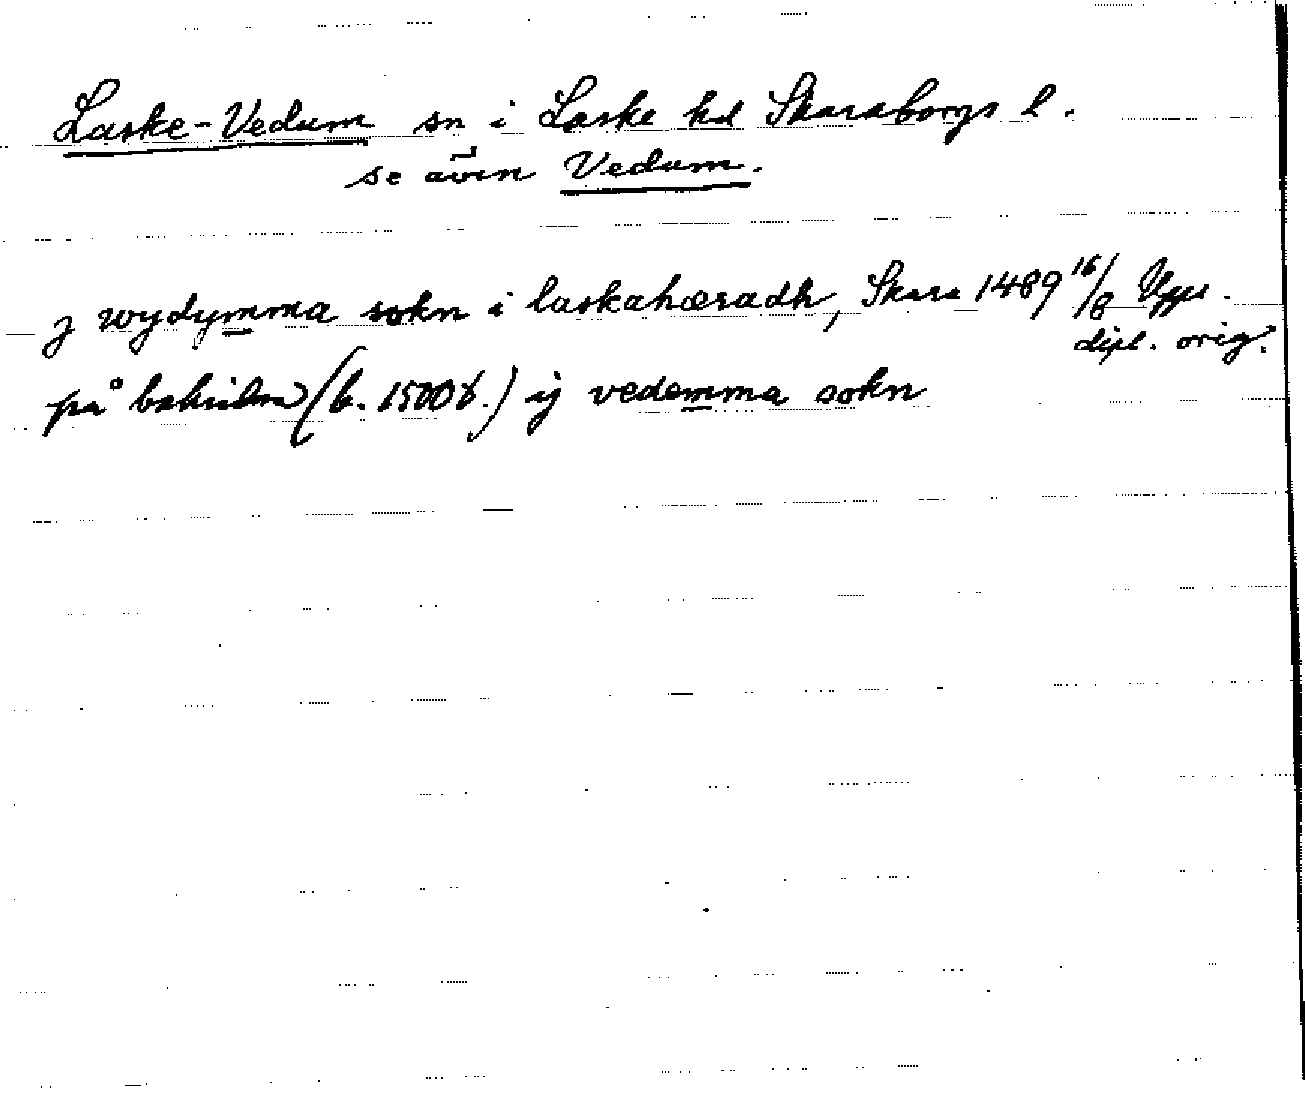 Laske-Vedum sn i Laske hd Skaraborgs l.
se även Vedum.
j wydymma sokn i laskahæradh, Skara 1489 16/8 Upps.
dipl. orig.
på baksidan (b. 1500t.) ij vedemma sokn